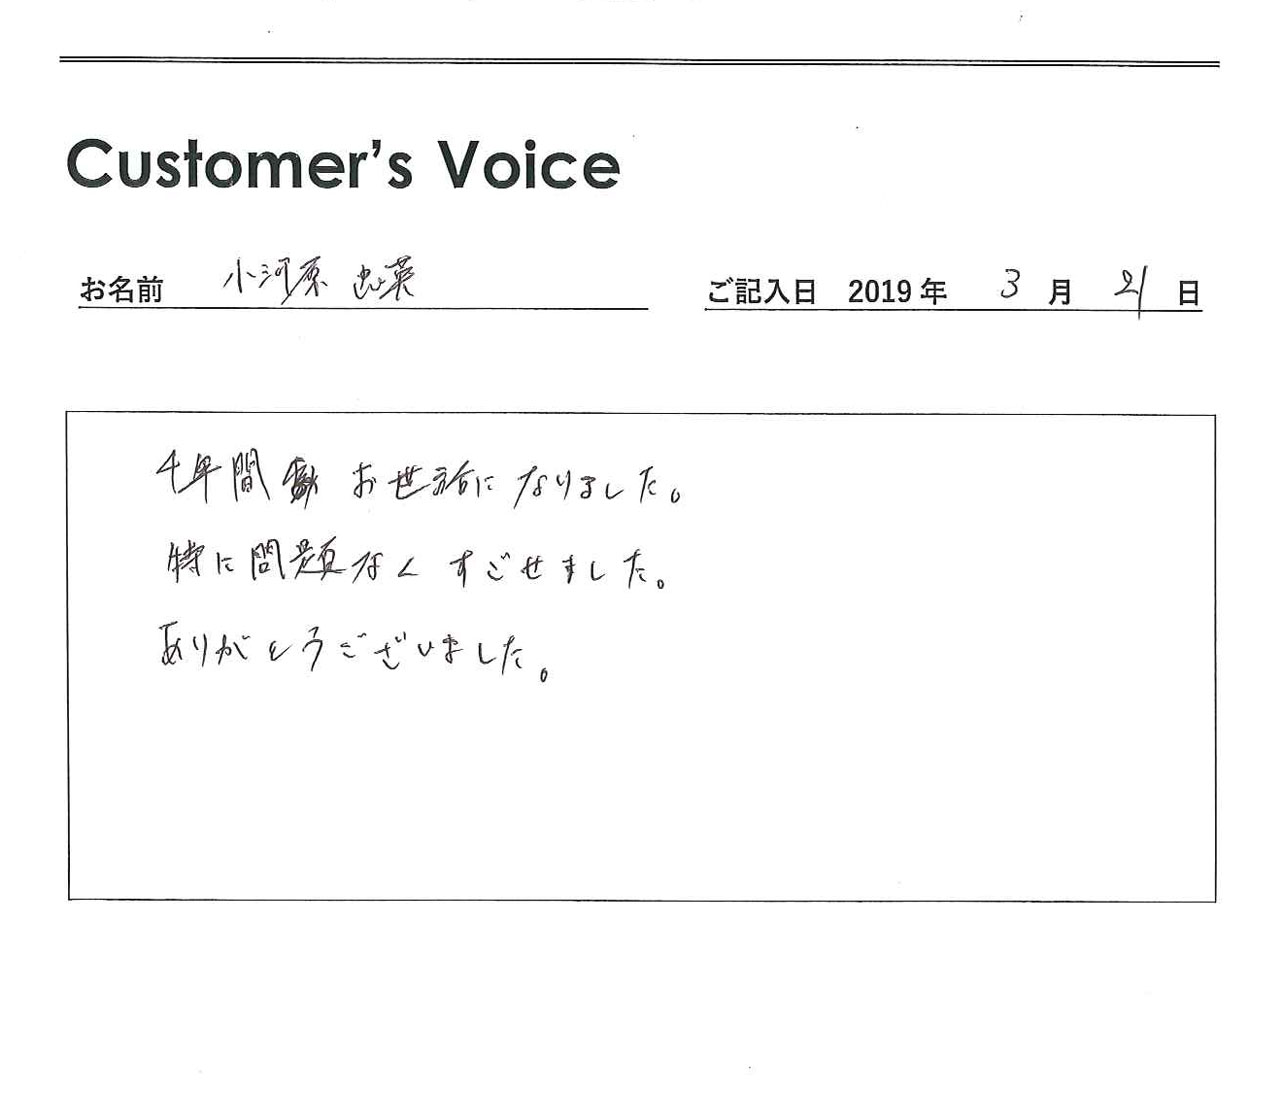 Customer's Voice
お名前 小河原 英
ご記入日 2019年 3月 21日
4年間 お世話になりました。
特に問題なく すごせました。
ありがとうございました。